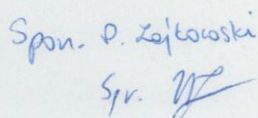 Spon. P. Zajkowski
Spr.